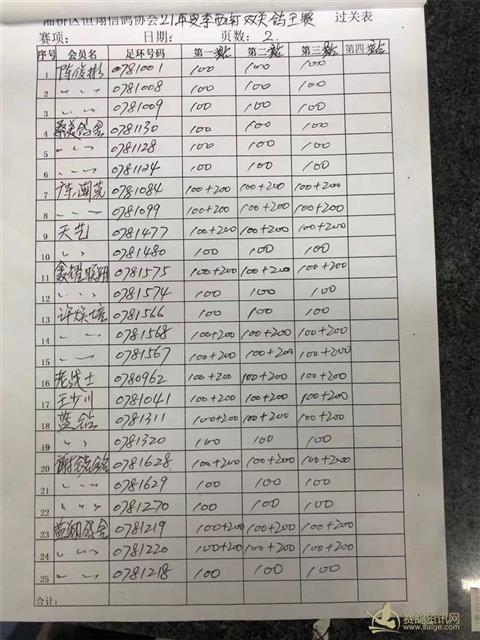 湘桥区恒翔信鸽协会21年夏季西南双关鸽王赛 过关表
赛项： 日期： 页数：2.
序 会员名 足环号码 第一关 第二关 第三关 第四关
1 陈俊彬 0781001 100 100 100
2 〃 〃 0781008 100 100 100
3 〃 〃 0781009 100 100 100
4 0781130 100 100 100
5 〃 〃 0781128 100 100 100
6 〃 〃 0781124 100 100 100
7 0781084 100+200 100+200 100+200
8 〃 〃 0781099 100+200 100+200 100+200
9 天艺 0781477 100+200 100+200 100+200
10 〃 〃 0781480 100 100 100
11 0781575 100+200 100+200 100+200
12 〃 〃 0781574 100 100 100
13 0781566 100 100 100
14 〃 〃 0781568 100+200 100+200 100+200
15 〃 〃 0781567 100+200 100+200 100+200
16 老战士 0780962 100+200 100+200 100+200
17 王少川 0781041 100+200 100+200 100+200
18 蓝钻 0781311 100+200 100+200 100+200
19 〃 〃 0781320 100 100 100
20 0781628 100+200 100+200 100+200
21 〃 〃 0781629 100 100 100
22 〃 〃 0781270 100 100 100
23 0781219 100+200 100+200 100+200
24 〃 〃 0781220 100+200 100+200 100+200
25 〃 〃 0781218 100 100 100
合计：
赛鸽资讯网
www.saige.com